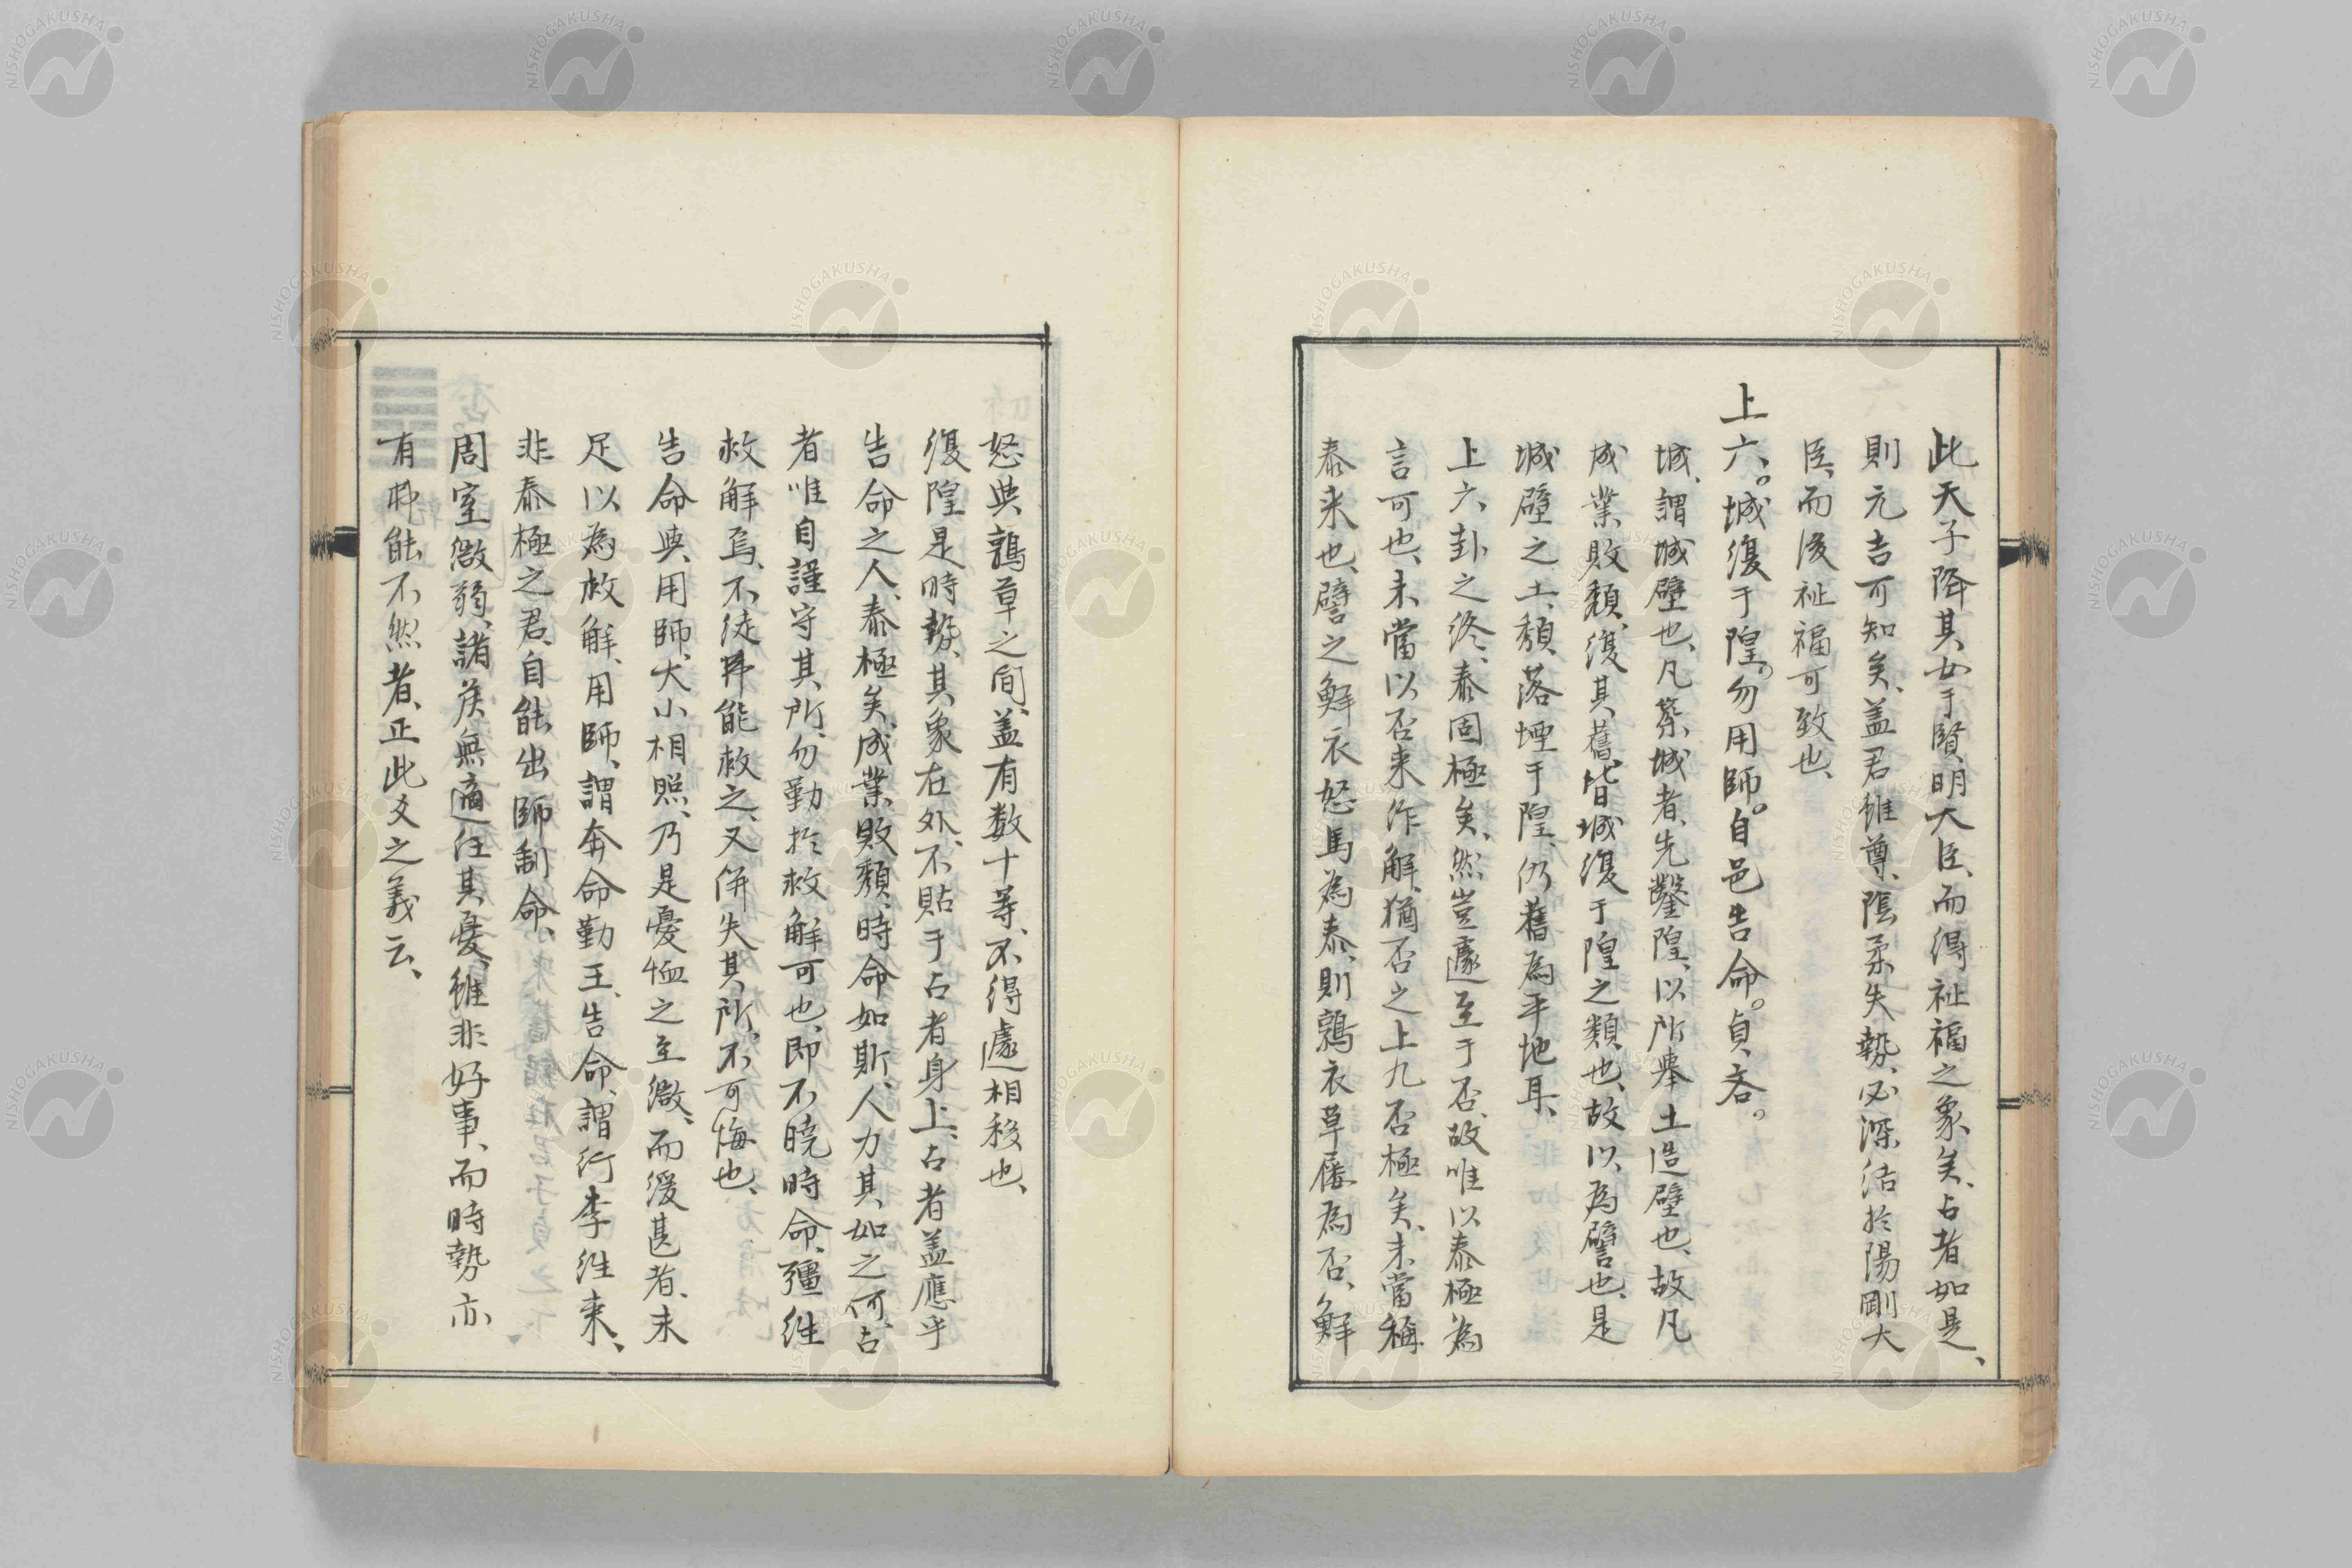 此天子降其女于賢明大臣、而得祉福之象矣、占者如是、
則元吉可知矣、蓋君雖尊、陰柔失勢、必深結於陽剛大
臣、而後祉福可致也、
上六。城復于隍。勿用師。自邑告命。貞吝。
城、謂城壁也、凡築城者、先鑿隍、以所擧土造壁也、故凡
成業敗頽、復其舊、皆城復于隍之類也、故以為譬也、是
城壁之土、頽落堙于隍、仍舊為平地耳、
上六卦之終、泰固極矣、然豈遽至于否、故唯以泰極為
言可也、未當以否来作解、猶否之上九否極矣、未當稱
泰来也、譬之鮮衣怒馬為泰、則鶉衣草屩為否、鮮
怒與鶉草之間、蓋有数十等、不得遽相移也、
復隍是時勢、其象在外、不貼于占者身上、占者蓋應乎
告命之人、泰極矣、成業敗頽、時命如斯、人力其如之何、占
者唯自謹守其所、勿勤於救解可也、即不曉時命、彊往
救解焉、不徒弗能救之、又併失其所、不可悔也、
告命與用師、大小相照、乃是憂恤之至微、而緩甚者、未
足以為救解、用師、謂奔命勤王、告命、謂行李往来、
非泰極之君、自能出師制命、
周室微弱、諸侯無適任其憂、雖非好事、而時勢亦
有弗能不然者、正此爻之義云、